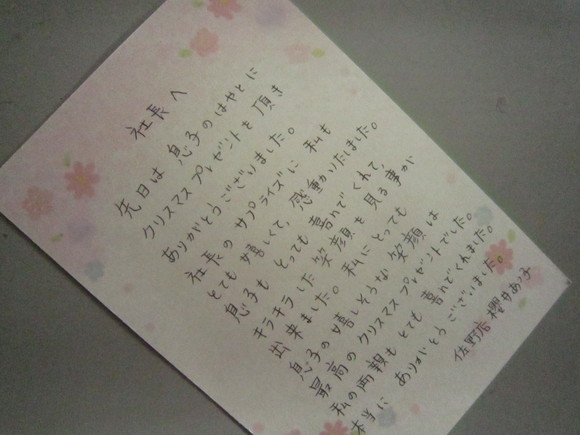 社長へ
先日は 息子のはやとに
クリスマスプレゼントを 頂き
ありがとうございました。
社長の サプライズに 私も
とても 嬉しくて、感動いたしました。
息子も とっても 喜んでくれて、
キラキラした 笑顔を 見る事が
出来ました。私にとっても
息子の嬉しそうな 笑顔は
最高の クリスマスプレゼントでした。
私の両親もとても 喜んでくれました。
本当に ありがとうございました。
佐野店 櫻井あつ子